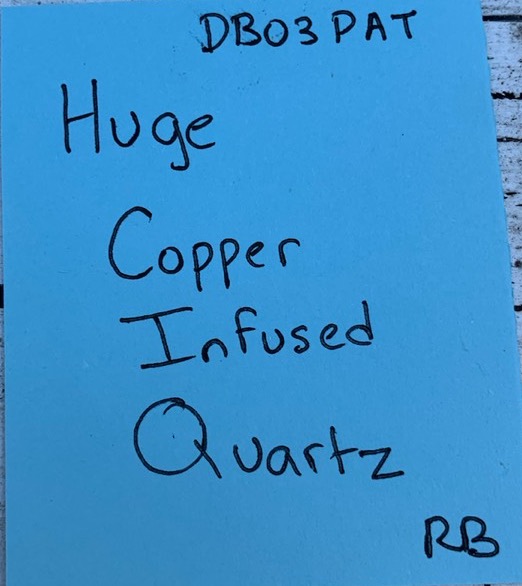 DB03 PAT
Huge
Copper
Infused
Quartz
RB